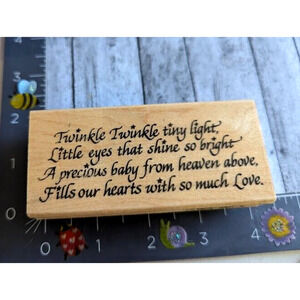 Twinkle Twinkle tiny light,
Little eyes that shine so bright
A precious baby from heaven above,
Fills our hearts with so much Love.
4
3
2
1
0
0
1
2
3
4